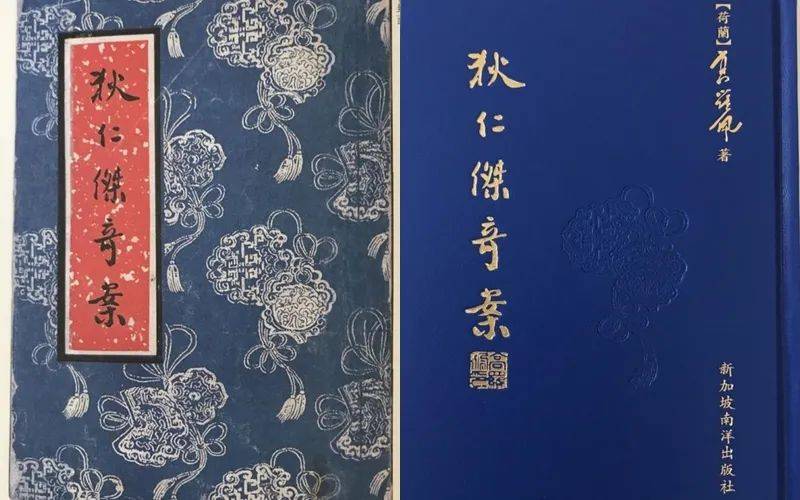 狄仁傑奇案
狄仁傑奇案
【荷蘭】高羅佩 著
新加坡南洋出版社